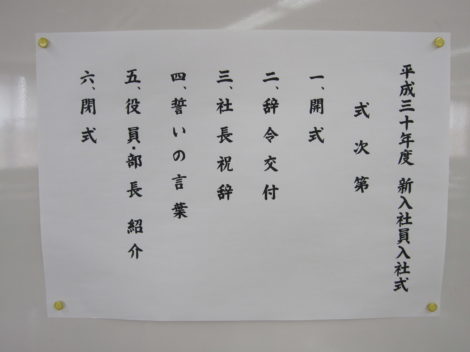 平成三十年度 新入社員入社式
式次第
一、開式
二、辞令交付
三、社長祝辞
四、誓いの言葉
五、役員・部長 紹介
六、閉式